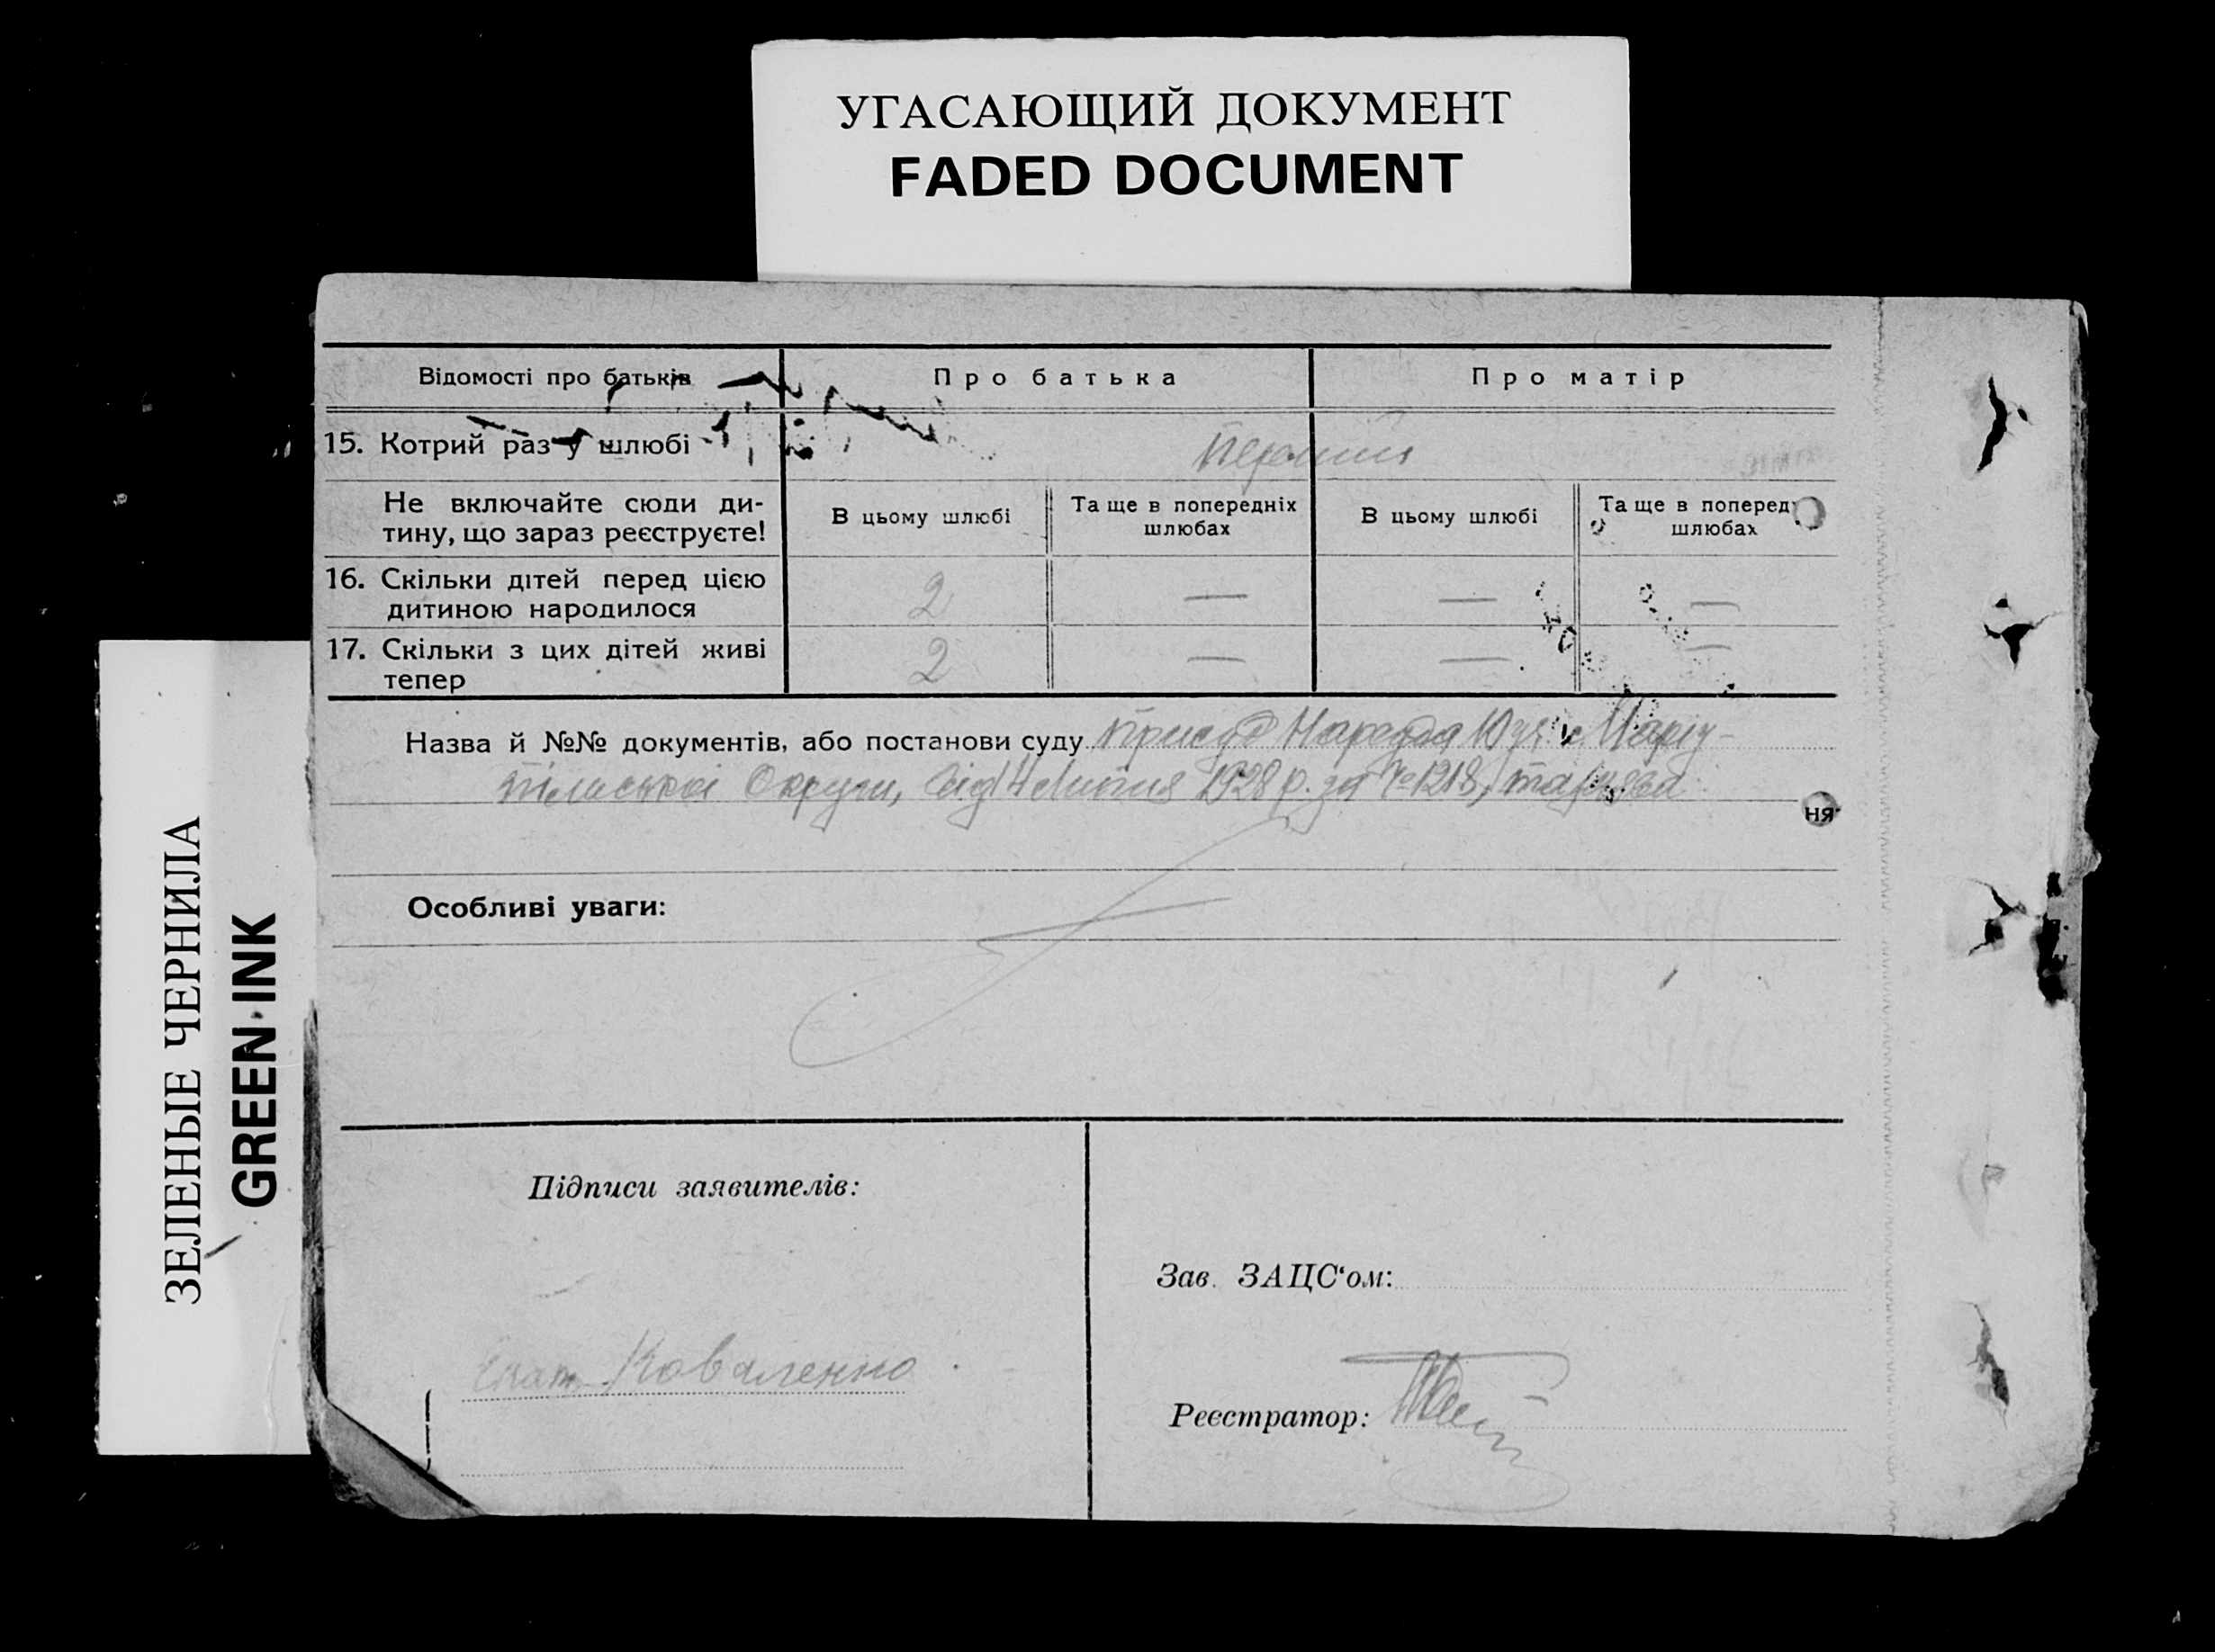 УГАСАЮЩИЙ ДОКУМЕНТ
FADED DOCUMENT
ЗЕЛЕНЫЕ ЧЕРНИЛА
GREEN INK
Відомості про батьків
Про батька
Про матір
15. Котрий раз у шлюбі
Перший
Не включайте сюди ди-
тину, що зараз реєструєте!
В цьому шлюбі
Та ще в попередніх
шлюбах
В цьому шлюбі
Та ще в поперед
шлюбах
16. Скільки дітей перед цією
дитиною народилося
2 — — —
17. Скільки з цих дітей живі
тепер
2 — — —
Назва й №№ документів, або постанови суду Присуд Марiу-
пільської Округи, від Липня 1928 р. за № 1218,
ня
Особливі уваги:
Підписи заявителів:
Коваленко
Зав. ЗАЦС'ом:
Реєстратор: